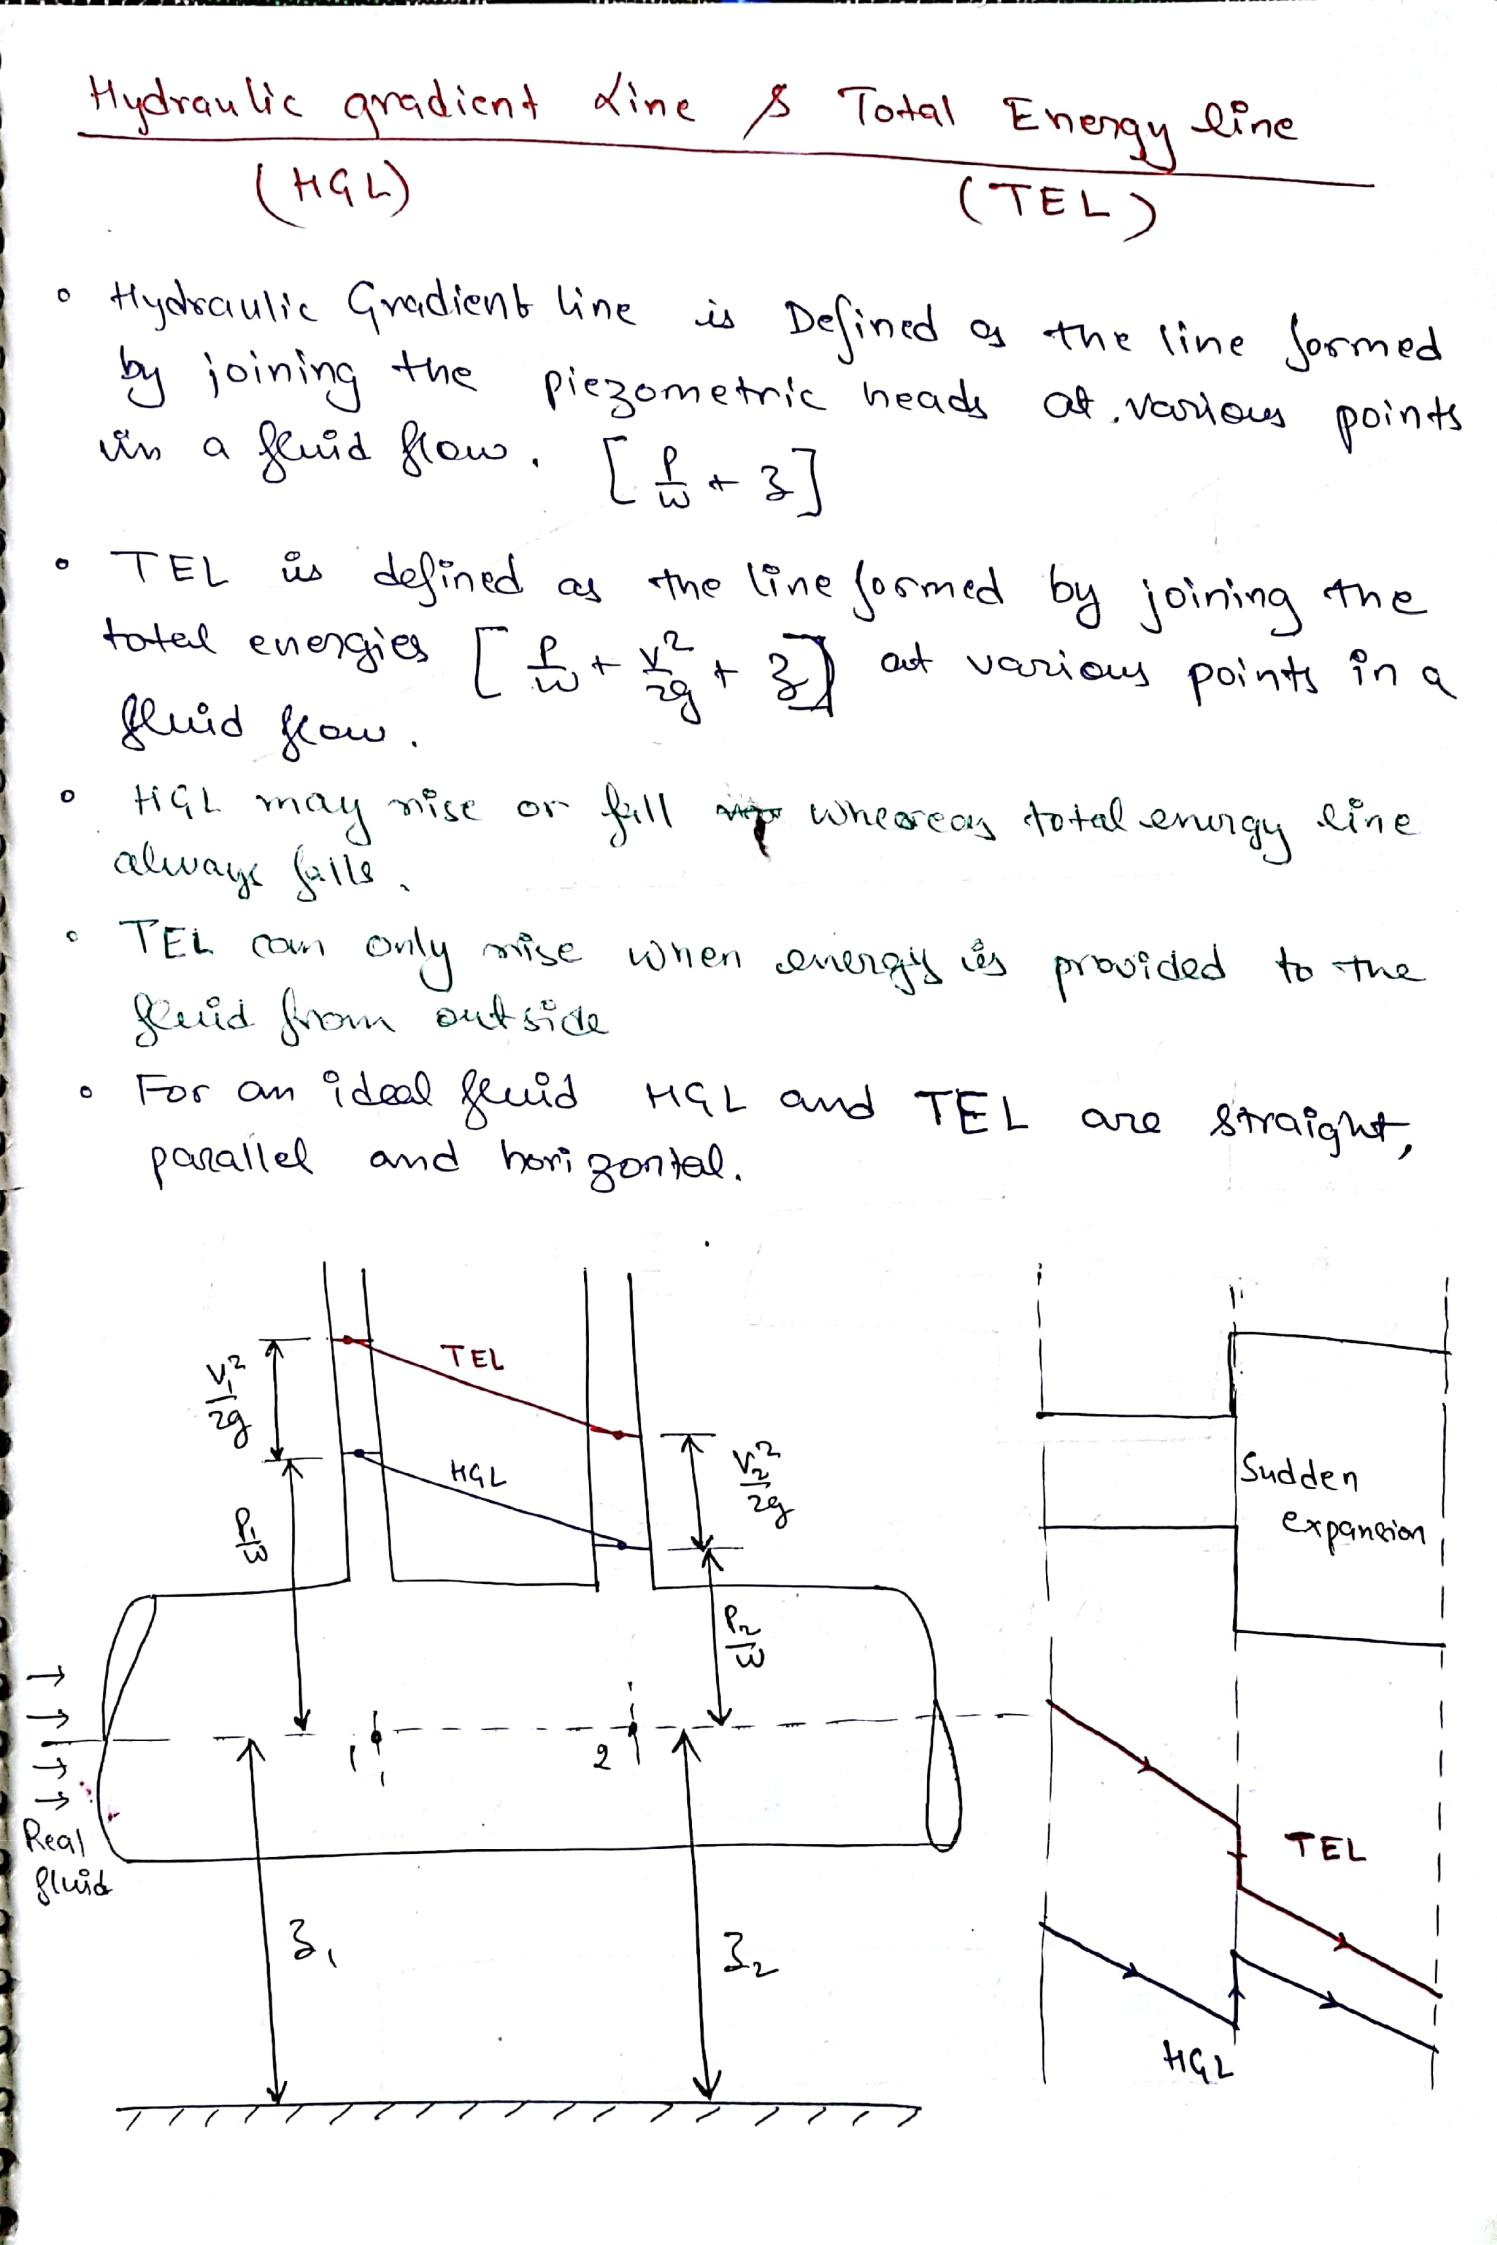 Hydraulic gradient Line & Total Energy line
(HGL) (TEL)
Hydraulic Gradient line is Defined as the line formed
by joining the piezometric heads at various points
in a fluid flow. [P/w + z]
TEL is defined as the line formed by joining the
total energies [P/w + V²/2g + z] at various points in a
fluid flow.
HGL may rise or fall whereas total energy line
always falls.
TEL can only rise when energy is provided to the
fluid from outside
For an ideal fluid HGL and TEL are straight,
parallel and horizontal.
V₁²/2g
TEL
HGL
V₂²/2g
P₁/w
P₂/w
1
2
Real
fluid
z₁
z₂
Sudden
expansion
TEL
HGL